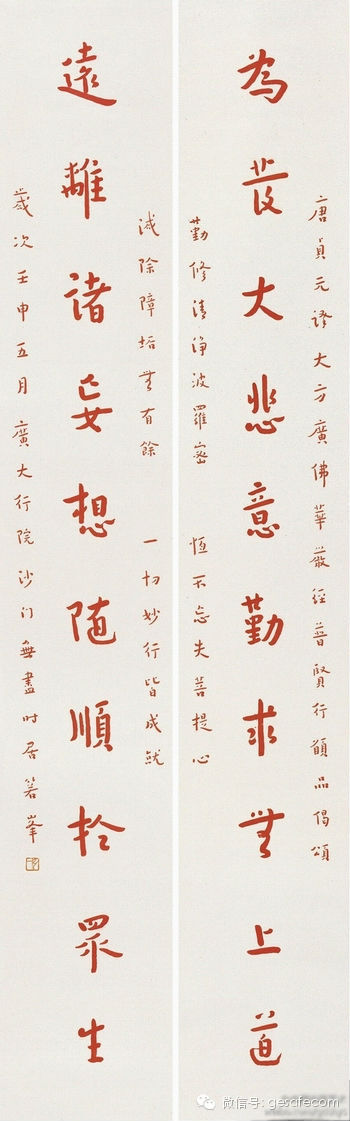 唐貞元譯大方廣佛華嚴經普賢行願品偈頌
為發大悲意勤求無上道
勤修清淨波羅蜜 恆不忘失菩提心
滅除障垢無有餘 一切妙行皆成就
遠離諸妄想隨順於眾生
歲次壬申五月廣大行院沙门無盡时居箬峯
微信号: gesafecom